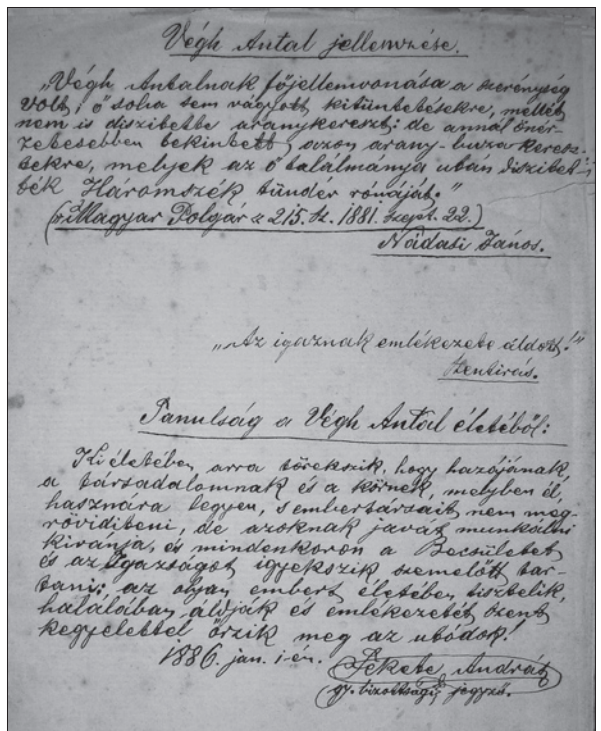 Végh Antal jellemzése.
„Végh Antalnak főjellemvonása a szerénység
volt; ő soha sem vágyott kitüntetésekre, mellét
nem is diszitette aranykereszt: de annál öner-
zetesebben tekintett azon arany-buza keresz-
tekre, melyek az ő találmánya után diszitet-
ték Háromszék tündér rónáját."
(Magyar Polgár 215. sz. 1881. szept. 22.)
Nádasi János.
„Az igaznak emlékezete áldott!"
Szentirás.
Tanulság a Végh Antal életéből:
Ki életében arra törekszik, hogy hazájának,
a társadalomnak és a körnek, melyben él,
hasznára legyen, s embertársait nem meg-
röviditeni, de azoknak javát munkálni
kivánja, és mindenkoron a Becsületet
és az Igazságot igyekszik szemelőtt tar-
tani; az olyan embert életében tisztelik,
halálában áldják és emlékezetét szent
kegyelettel őrzik meg az utódok!
1886. jan. 1-én. Fekete András
gy. bizottsági jegyző.